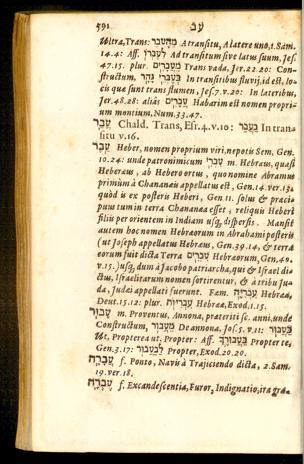 591 עב
Ultra, Trans: מֵהָעֵבֶר A transitu, A latere uno, 1. Sam.
14:4: Aff. לְעֶבְרוֹ Ad transitum sive latus suum, Jes.
47.15. plur. מֵעֲבָרִים Trans vada, Jer. 22.20: Con-
structum, בְּעֶבְרֵי נָהָר In transitibus fluvij, id est, lo-
cis quæ sunt trans flumen, Jes. 7. v. 20: In lateribus,
Jer. 48.28: aliàs עֲבָרִים Habarim est nomen propri-
um montium, Num. 33.47.
עֲבַר Chald. Trans, Esr. 4. v. 10: בַּעֲבַר In trans
situ v. 16.
עֵבֶר Heber, nomen proprium viri, nepotis Sem, Gen.
10.24: unde patronimicum עִבְרִי m. Hebræus, quasi
Heberæus, ab Hebero ortus, quo nomine Abramus
primùm à Chananæis appellatus est, Gen. 14. ver. 13:
quòd is ex posteris Heberi, Gen. 11. solus & præci-
puus tum in terra Chananæa esset; reliquis Heberi
filiis per orientem in Indiam usq; dispersis. Mansit
autem hoc nomen Hebræorum in Abrahami posteris
(ut Joseph appellatus Hebræus, Gen. 39.14, & terra
eorum fuit dicta Terra עִבְרִים Hebræorum, Gen. 40.
v. 15.) usq; dum à Jacobo patriarcha, qui & Israel di-
ctus, Israelitarum nomen sortirentur, & à tribu Ju-
da, Judæi appellati fuerunt. Fam. עִבְרִיָּה Hebræa,
Deut. 15.12: plur. עִבְרִיּוֹת Hebrææ, Exod. 1.15.
עָבוּר m. Proventus, Annona, præteriti sc. anni, unde
Constructum, מֵעֲבוּר De annona. Jos. 5. v. 11: בַּעֲבוּר
Ut, Propterea ut, Propter: Aff. בַּעֲבוּרֶךָ Propter te,
Gen. 3.17: לְבַעֲבוּר Propter, Exod. 20.20.
עֲבָרָה f. Ponto, Navis à Trajiciendo dicta, 2. Sam.
19. ver. 18.
עֶבְרָה f. Excandescentia, Furor, Indignatio, ira gra-